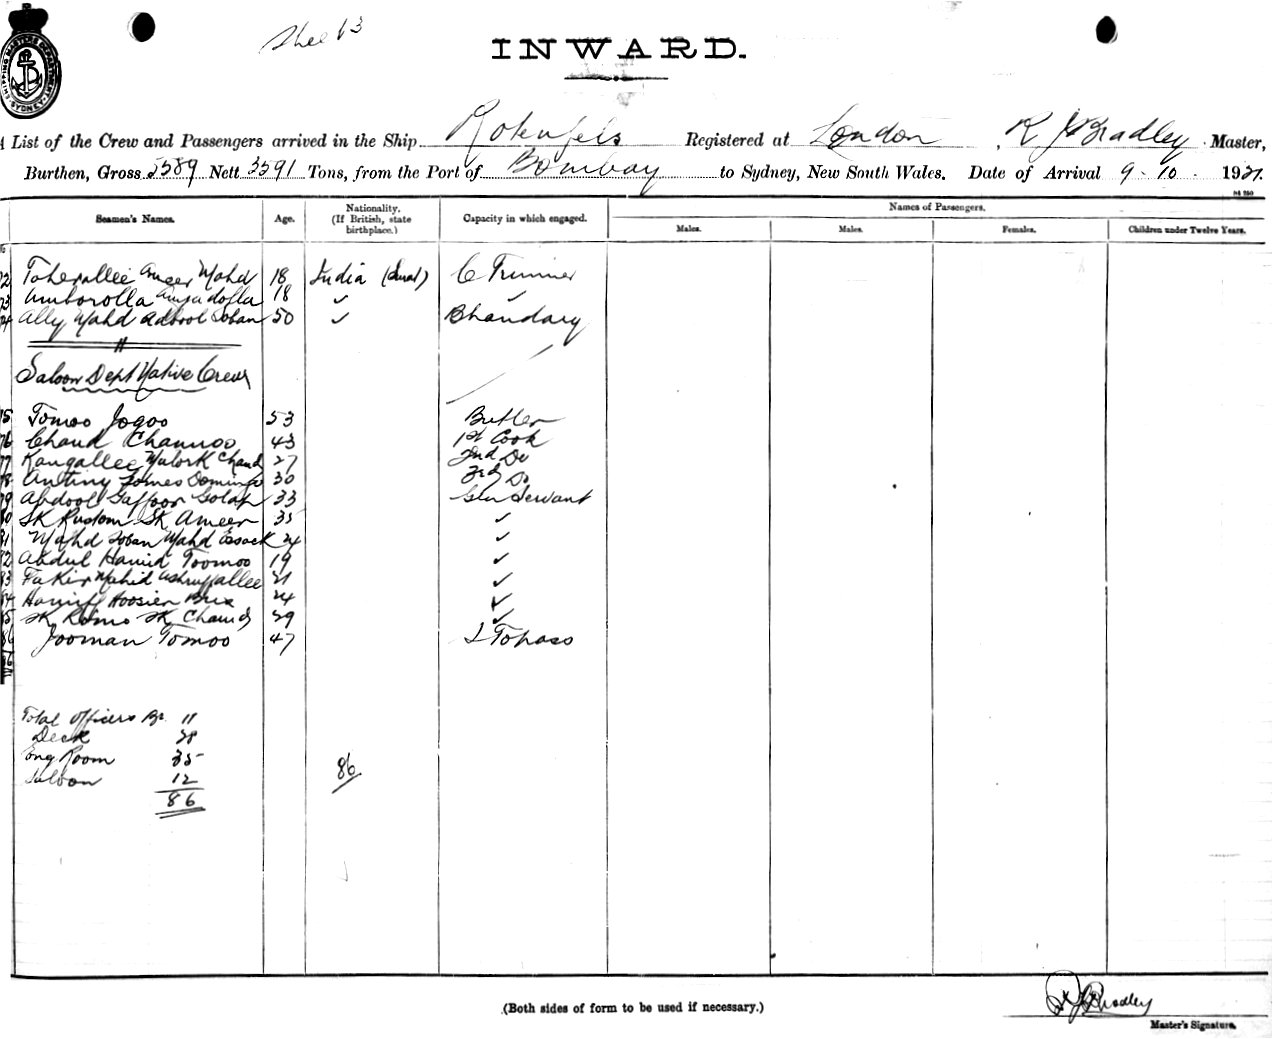 Sheet 3
INWARD.
SHIPPING MASTER'S DEPARTMENT SYDNEY
A List of the Crew and Passengers arrived in the Ship Rotenfels Registered at London, R J Bradley Master,
Burthen, Gross 5589 Nett 3591 Tons, from the Port of Bombay to Sydney, New South Wales. Date of Arrival 9-10-1921.
Seamen's Names. Age. Nationality. (If British, state birthplace.) Capacity in which engaged. Names of Passengers.
Males. Males. Females. Children under Twelve Years.
72 Taherallee Ameer Mahd 18 India C Trimmer
73 Amborolla 18 ✓ ✓
74 Ally Mahd Adbool Soban 50 ✓ Bhandary
Saloon Dept Native Crew
75 Tomoo Jogoo 53 Butler
76 Chand Chamroo 43 1st Cook
77 Kangallee Mulork Chand 27 2nd Do
78 Antiny Gomes Domingo 30 3rd Do
79 Abdool Gaffoor Golap 33 Gen Servant
80 SK Rustom SK Ameer 35 ✓
81 Mahd Soban Mahd Essack 24 ✓
82 Abdul Hamid Toomoo 19 ✓
83 Fakir Mahid Ashruffallee 21 ✓
84 Haniff Hoosien Bux 24 ✓
85 SK Romo SK Chand 29 ✓
86 Jooman Tomoo 47 Topass
Total Officers Br. 11
Deck 28
Eng Room 35
Saloon 12
86
86
(Both sides of form to be used if necessary.)
R J Bradley
Master's Signature.